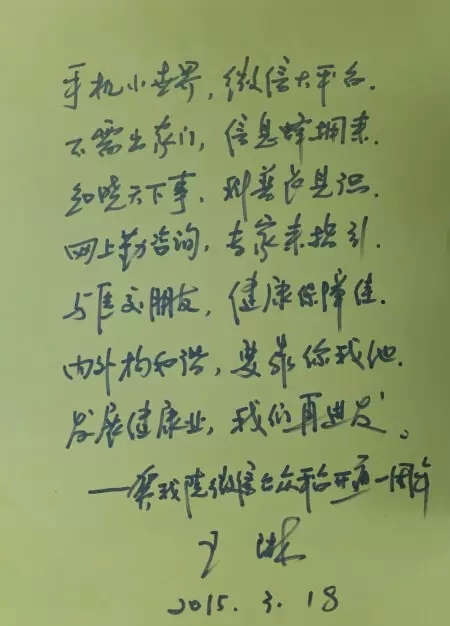 手机小世界，微信大平台.
不需出家门，信息蜂拥来.
知晓天下事，科普长见识.
网上勤咨询，专家来指引.
与医交朋友，健康保障佳.
内外构和谐，要靠你我他.
发展健康业，我们再进发。
——贺我院微信公众平台开通一周年
王
2015.3.18